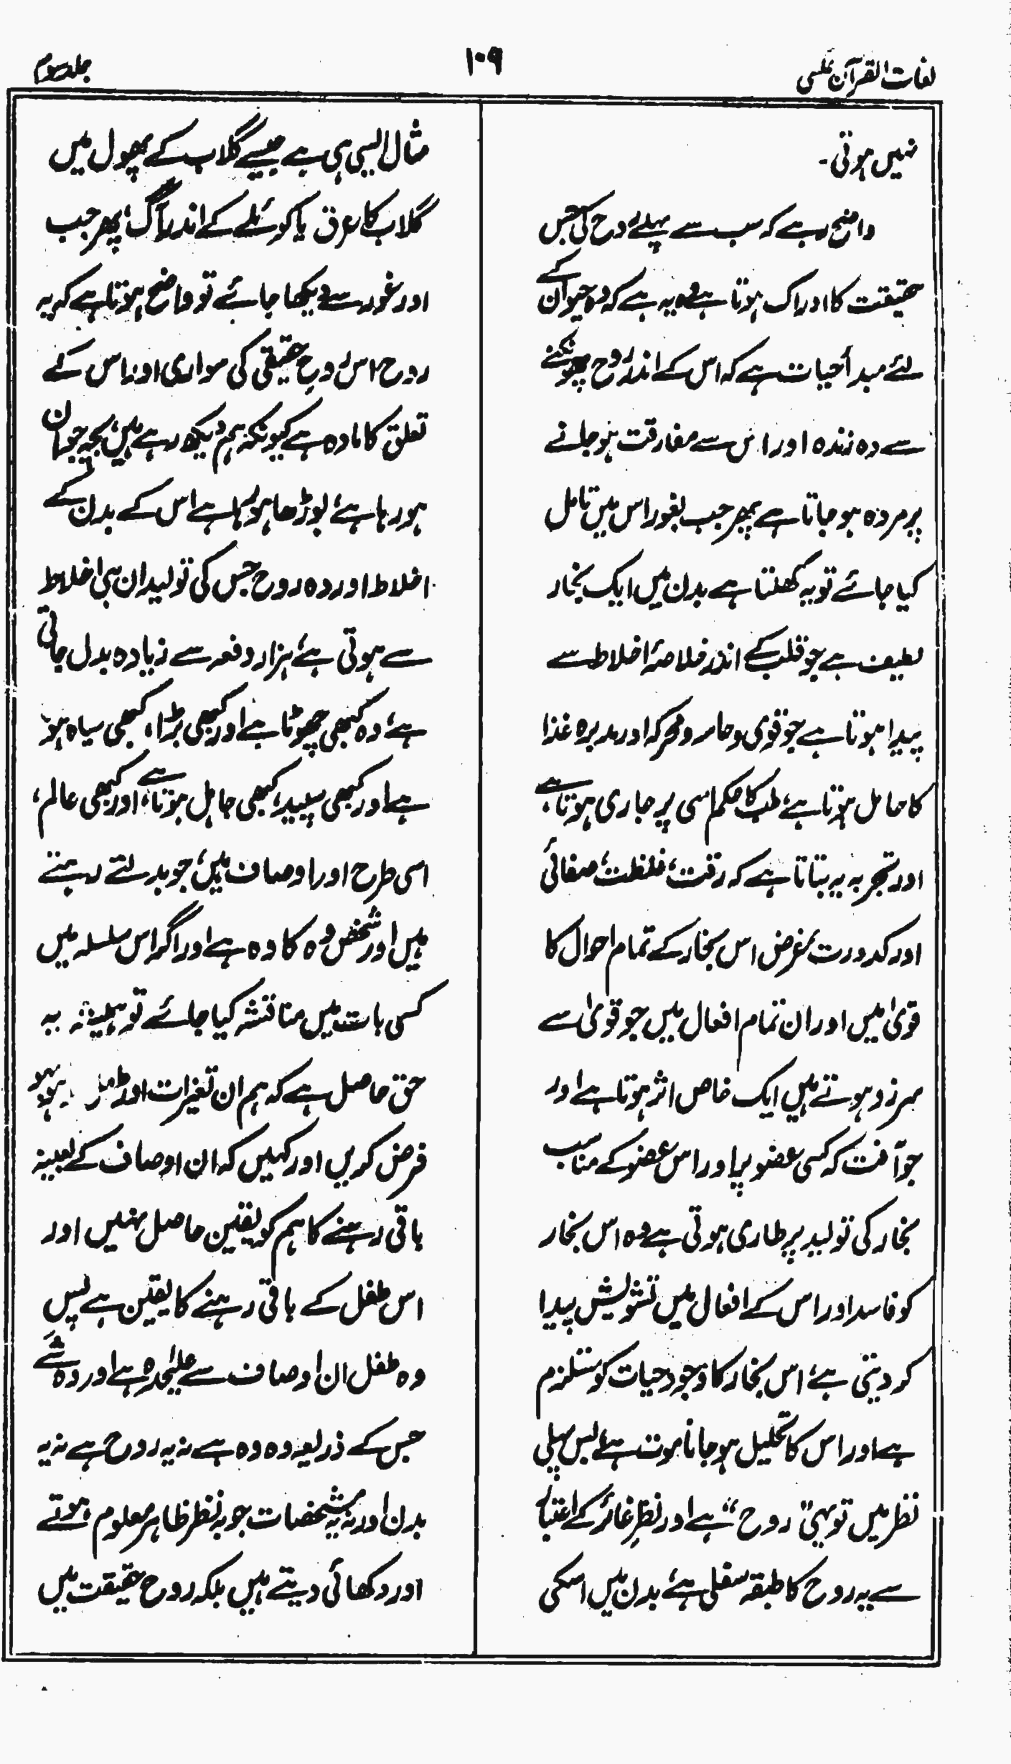 لغات القرآن عکسی
۱۰۹
جلد سوم
نہیں ہوتی۔
واضح رہے کہ سب سے پہلے روح کی جس
حقیقت کا ادراک ہوتا ہے وہ یہ ہے کہ وہ حیوان کے
لئے مبدأ حیات ہے کہ اس کے اندر روح پھونکنے
سے وہ زندہ اور اس سے مفارقت ہو جانے
پر مردہ ہو جاتا ہے پھر جب بغور اس میں تامل
کیا جائے تو یہ کھلتا ہے بدن میں ایک بخار
لطیف ہے جو قلب کے اندر خلاصۂ اخلاط سے
پیدا ہوتا ہے جو قوی وحاسہ ومحرکہ اور مدبرہ غذا
کا حامل ہوتا ہے، طب کا حکم اسی پر جاری ہوتا ہے،
اور تجربہ یہ بتاتا ہے کہ رقت، غلظت، صفائی
اور کدورت، غرض اس بخار کے تمام احوال کا
قویٰ میں اور ان تمام افعال میں جو قویٰ سے
سرزد ہوتے ہیں ایک خاص اثر ہوتا ہے اور
جو آفت کہ کسی عضو پر اور اس عضو کے مناسب
بخار کی تولید پر طاری ہوتی ہے وہ اس بخار
کو فاسد اور اس کے افعال میں تشویش پیدا
کر دیتی ہے، اس بخار کا وجود حیات کو مستلزم
ہے اور اس کا تحلیل ہو جانا موت ہے، پس پہلی
نظر میں تو یہی "روح" ہے اور نظر غائر کے اعتبار
سے یہ روح کا طبقہ سفلی ہے، بدن میں اسکی
مثال ایسی ہی ہے جیسے گلاب کے پھول میں
گلاب کا عرق یا کوئلے کے اندر آگ، پھر جب
اور غور سے دیکھا جائے تو واضح ہوتا ہے کہ یہ
روح اس روح حقیقی کی سواری اور اس کے
تعلق کا مادہ ہے کیونکہ ہم دیکھ رہے ہیں، بچہ جوان
ہو رہا ہے، بوڑھا ہو رہا ہے اس کے بدن کے
اخلاط اور وہ روح جس کی تولید ان ہی اخلاط
سے ہوتی ہے، ہزار دفعہ سے زیادہ بدل جاتی
ہے، وہ کبھی چھوٹا ہے اور کبھی بڑا، کبھی سیاہ ہو
ہے اور کبھی سپید، کبھی جاہل ہوتا ہے، اور کبھی عالم،
اسی طرح اور اوصاف ہیں، جو بدلتے رہتے
ہیں اور شخص وہ کا وہ ہے اور اگر اس سلسلہ میں
کسی بات میں مناقشہ کیا جائے تو ہمیشہ یہ
حق حاصل ہے کہ ہم ان تغیرات اور
فرض کریں اور کہیں کہ ان اوصاف کے بعینہٖ
باقی رہنے کا ہم کو یقین حاصل نہیں اور
اس طفل کے باقی رہنے کا یقین ہے پس
وہ طفل ان اوصاف سے علیٰحدہ ہے اور وہ شے
جس کے ذریعہ وہ وہ ہے نہ یہ روح ہے نہ یہ
بدن اور نہ یہ مشخصات جو بہ نظر ظاہر معلوم ہوتے
اور دکھائی دیتے ہیں بلکہ روح حقیقت میں